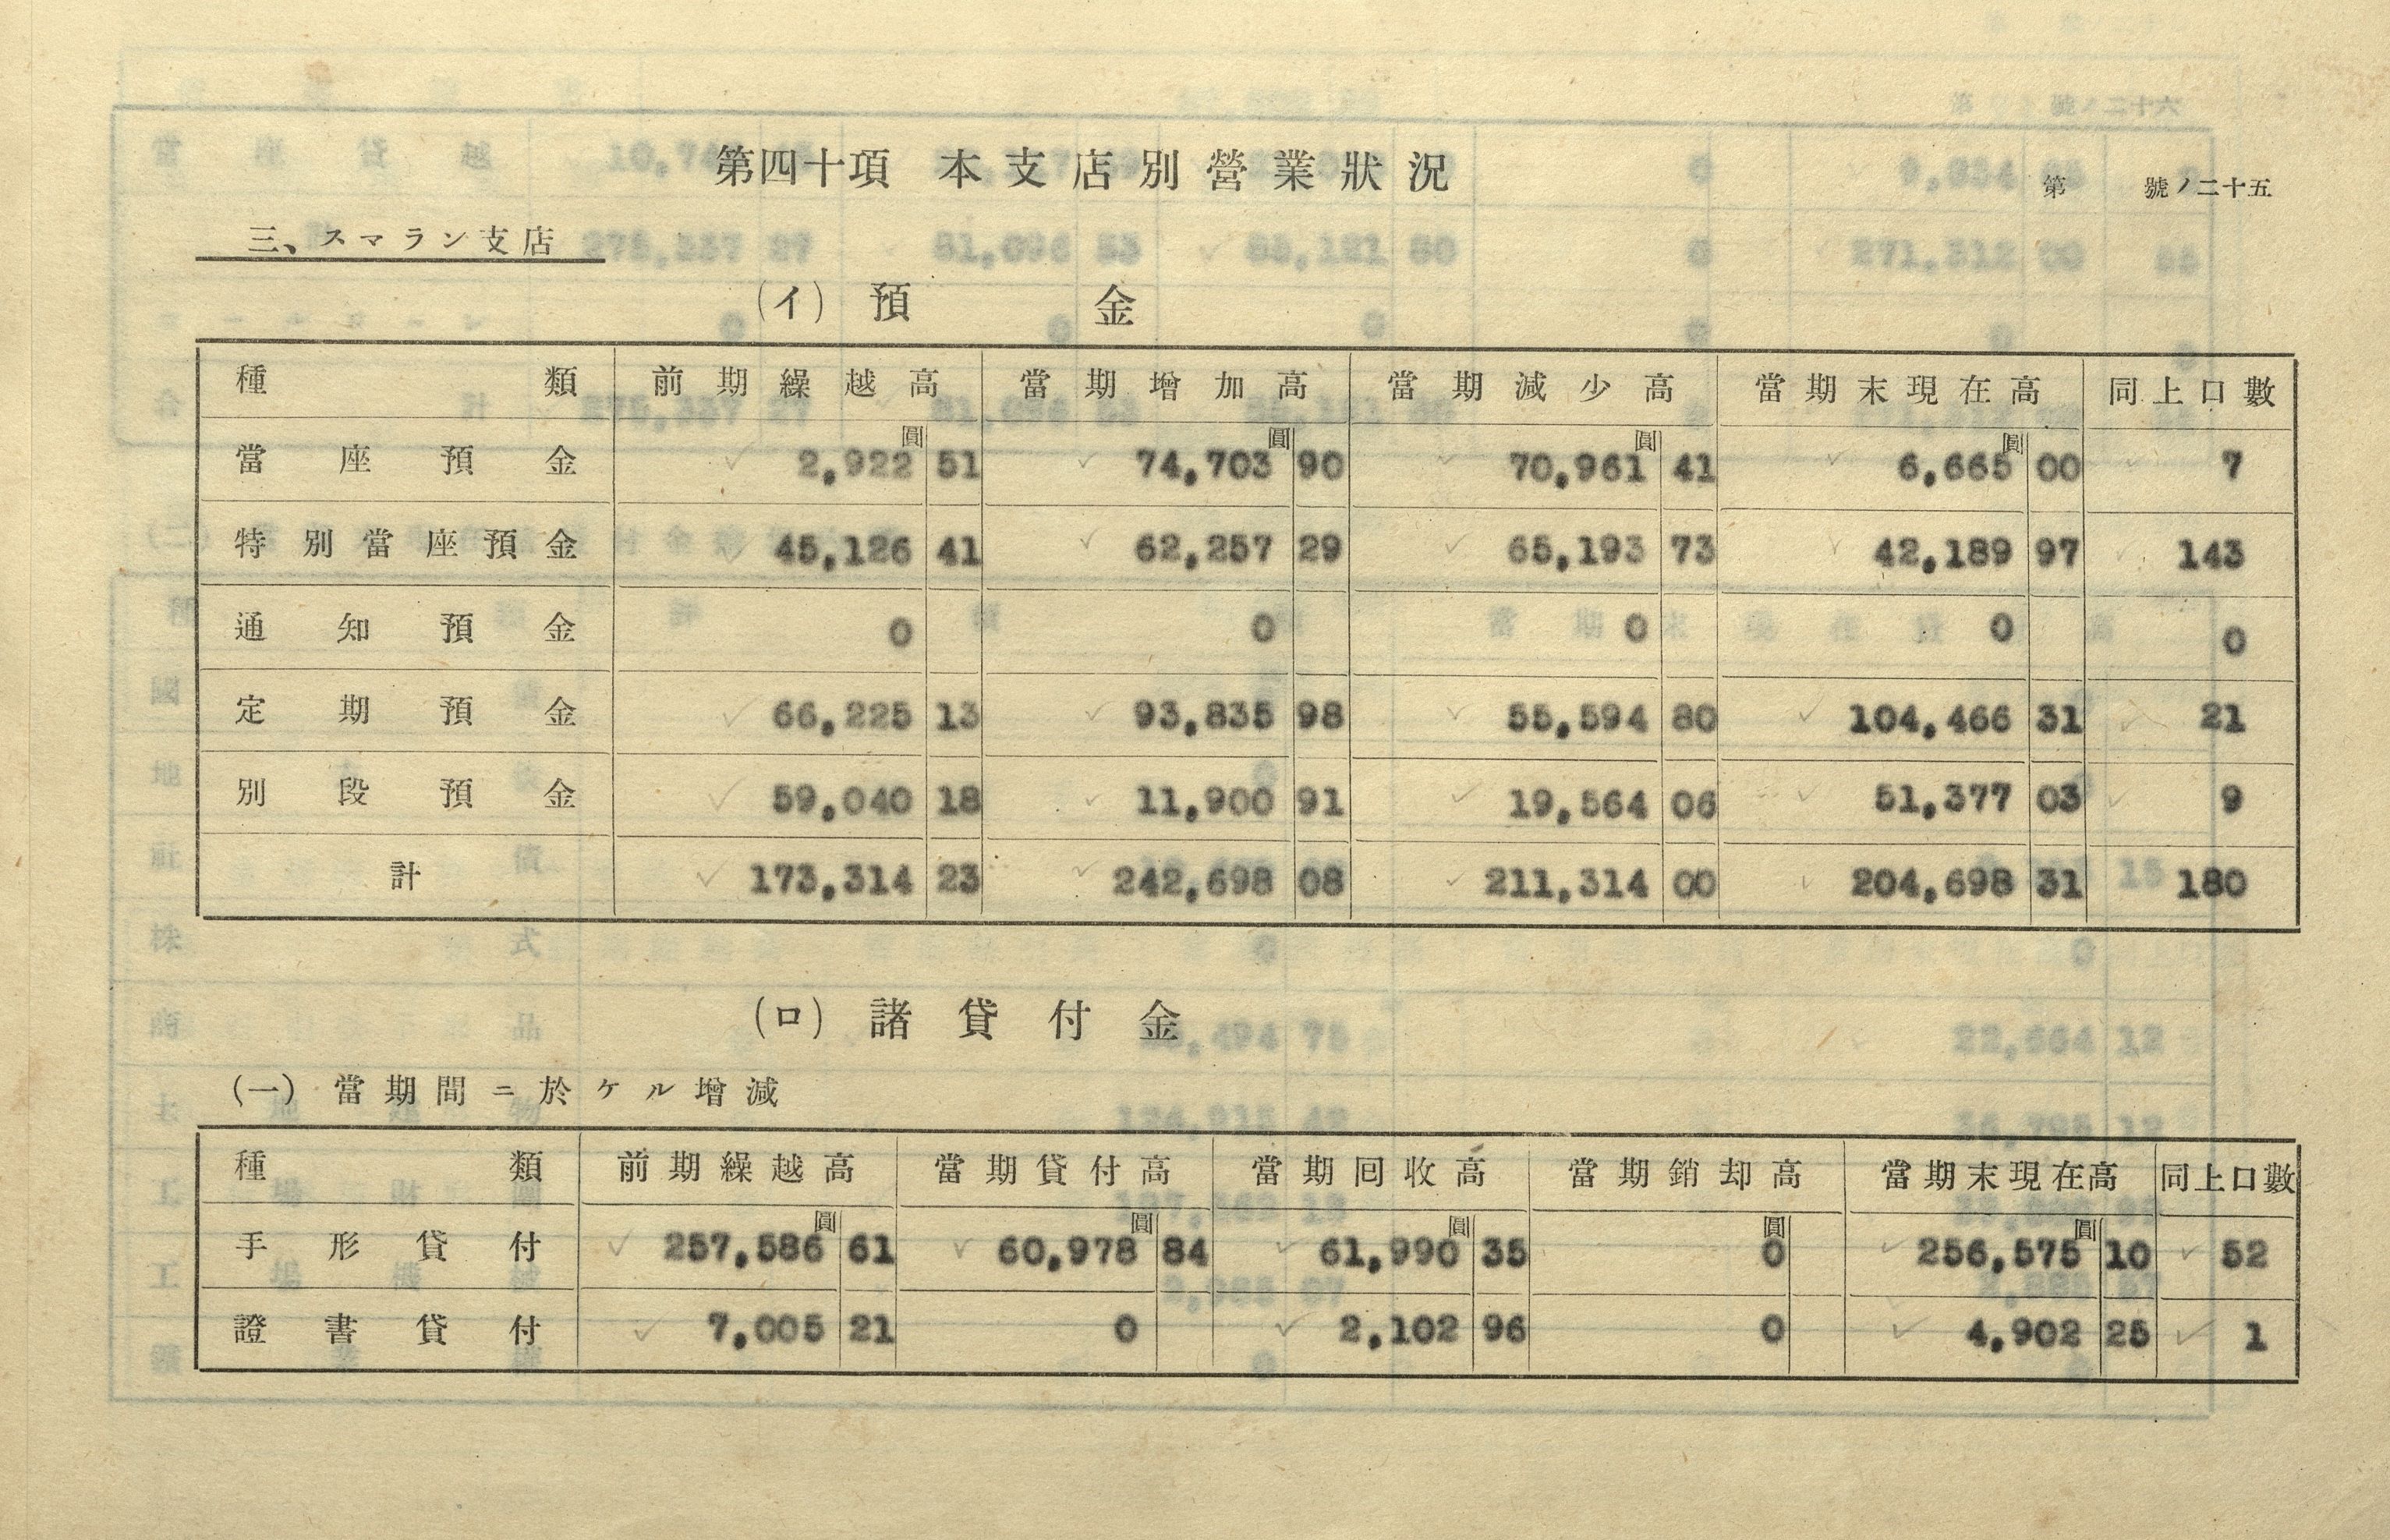 第四十項 本支店別營業狀況
第 號ノ二十五
三、スマラン支店
(イ) 預 金
種類 前期繰越高 當期增加高 當期減少高 當期末現在高 同上口數
圓 圓 圓 圓
當座預金 2,922 51 74,703 90 70,961 41 6,665 00 7
特別當座預金 45,126 41 62,257 29 65,193 73 42,189 97 143
通知預金 0 0 0 0 0
定期預金 66,225 13 93,835 98 55,594 80 104,466 31 21
別段預金 59,040 18 11,900 91 19,564 06 51,377 03 9
計 173,314 23 242,698 08 211,314 00 204,698 31 180
(ロ) 諸貸付金
(一) 當期間ニ於ケル增減
種類 前期繰越高 當期貸付高 當期回收高 當期銷却高 當期末現在高 同上口數
圓 圓 圓 圓 圓
手形貸付 257,586 61 60,978 84 61,990 35 0 256,575 10 52
證書貸付 7,005 21 0 2,102 96 0 4,902 25 1